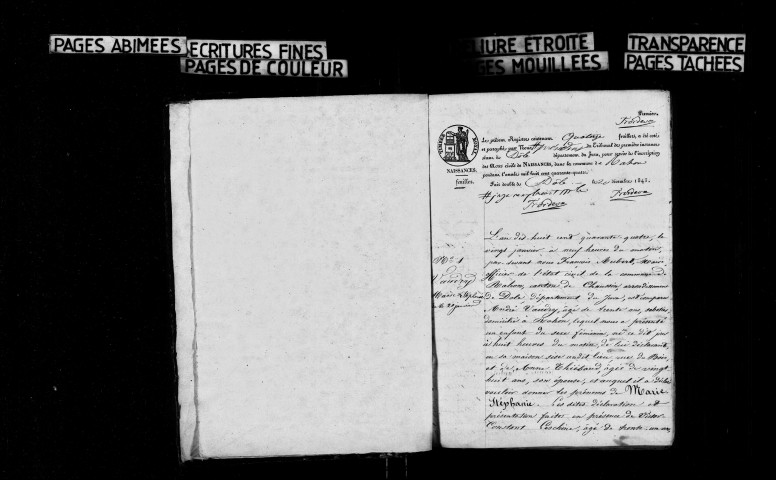 PAGES ABIMEES
ECRITURES FINES
PAGES DE COULEUR
LIURE ETROITE
GES MOUILLEES
TRANSPARENCE
PAGES TACHEES
Premier,
Le présent Registre contenant quatorze feuillets, a été coté
et paraphé par Nous président du Tribunal de première instance
séant à Dole département du Jura, pour servir de l'inscription
des Actes civils de NAISSANCES, dans la commune de Rahon
pendant l'année mil huit cent quarante-quatre.
Fait double à Dole décembre 1843.
NAISSANCES,
feuillet.
No 1
Vandry
Marie Stéphanie
le 20 janvier
L'an dix huit cent quarante quatre, le
vingt janvier à neuf heures du matin,
par devant nous François Maire
officier de l'état civil de la commune de
Rahon, canton de Chaussin, arrondissement
de Dole, département du Jura, est comparu
André Vandry, âgé de trente ans, sabotier,
domicilié à Rahon, lequel nous a présenté
un enfant du sexe féminin, né ce dit jour
à huit heures du matin, de lui déclarant,
en sa maison sise audit lieu rue du Bois,
et de Anne Thiebaud, âgée de vingt
huit ans, son épouse, et auquel il a déclaré
vouloir donner les prénoms de Marie
Stéphanie. Ces dites déclaration et
présentation faites en présence de Victor
Constant âgé de trente un ans,